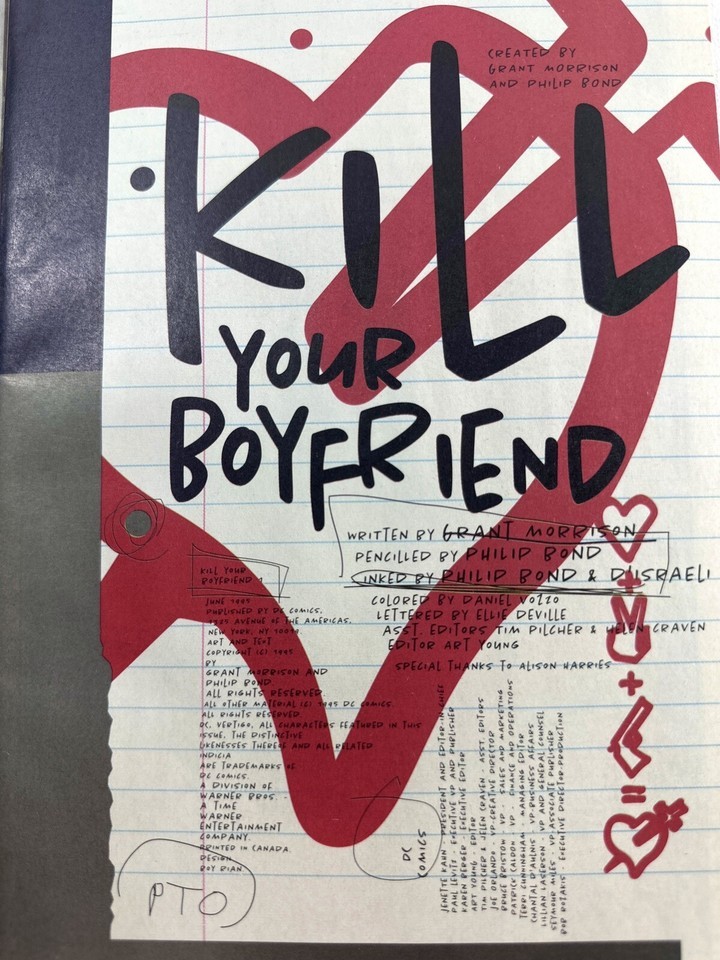 CREATED BY
GRANT MORRISON
AND PHILIP BOND
KILL
YOUR
BOYFRIEND
WRITTEN BY GRANT MORRISON
PENCILLED BY PHILIP BOND
INKED BY PHILIP BOND & D'ISRAELI
COLORED BY DANIEL VOZZO
LETTERED BY ELLIE DEVILLE
ASST. EDITORS TIM PILCHER & HELEN CRAVEN
EDITOR ART YOUNG
SPECIAL THANKS TO ALISON HARRIES
KILL YOUR
BOYFRIEND 1
JUNE 1995
PUBLISHED BY DC COMICS,
AVENUE OF THE AMERICAS,
NEW YORK, NY 10019.
ART AND TEXT
COPYRIGHT (C) 1995
BY
GRANT MORRISON AND
PHILIP BOND.
ALL RIGHTS RESERVED.
ALL OTHER MATERIAL (C) 1995 DC COMICS.
ALL RIGHTS RESERVED.
DC, VERTIGO, ALL CHARACTERS FEATURED IN THIS
ISSUE, THE DISTINCTIVE
LIKENESSES THEREOF AND ALL RELATED
INDICIA
ARE TRADEMARKS OF
DC COMICS.
A DIVISION OF
WARNER BROS. -
A TIME
WARNER
ENTERTAINMENT
COMPANY.
PRINTED IN CANADA.
DESIGN
PTO
DC
COMICS
JENETTE KAHN - PRESIDENT AND EDITOR-IN-CHIEF
PAUL LEVITZ - EXECUTIVE VP AND PUBLISHER
KAREN BERGER - EXECUTIVE EDITOR
ART YOUNG - EDITOR
TIM PILCHER & HELEN CRAVEN - ASST. EDITORS
JOE ORLANDO - VP-CREATIVE DIRECTOR
BRUCE BRISTOW - VP - SALES AND MARKETING
PATRICK CALDON - VP - FINANCE AND OPERATIONS
TERRI CUNNINGHAM - MANAGING EDITOR
CHANTAL D'AULNIS - VP-BUSINESS AFFAIRS
LILLIAN LASERSON - VP AND GENERAL COUNSEL
SEYMOUR MILES - VP-ASSOCIATE PUBLISHER
BOB ROZAKIS - EXECUTIVE DIRECTOR-PRODUCTION
+
+
=